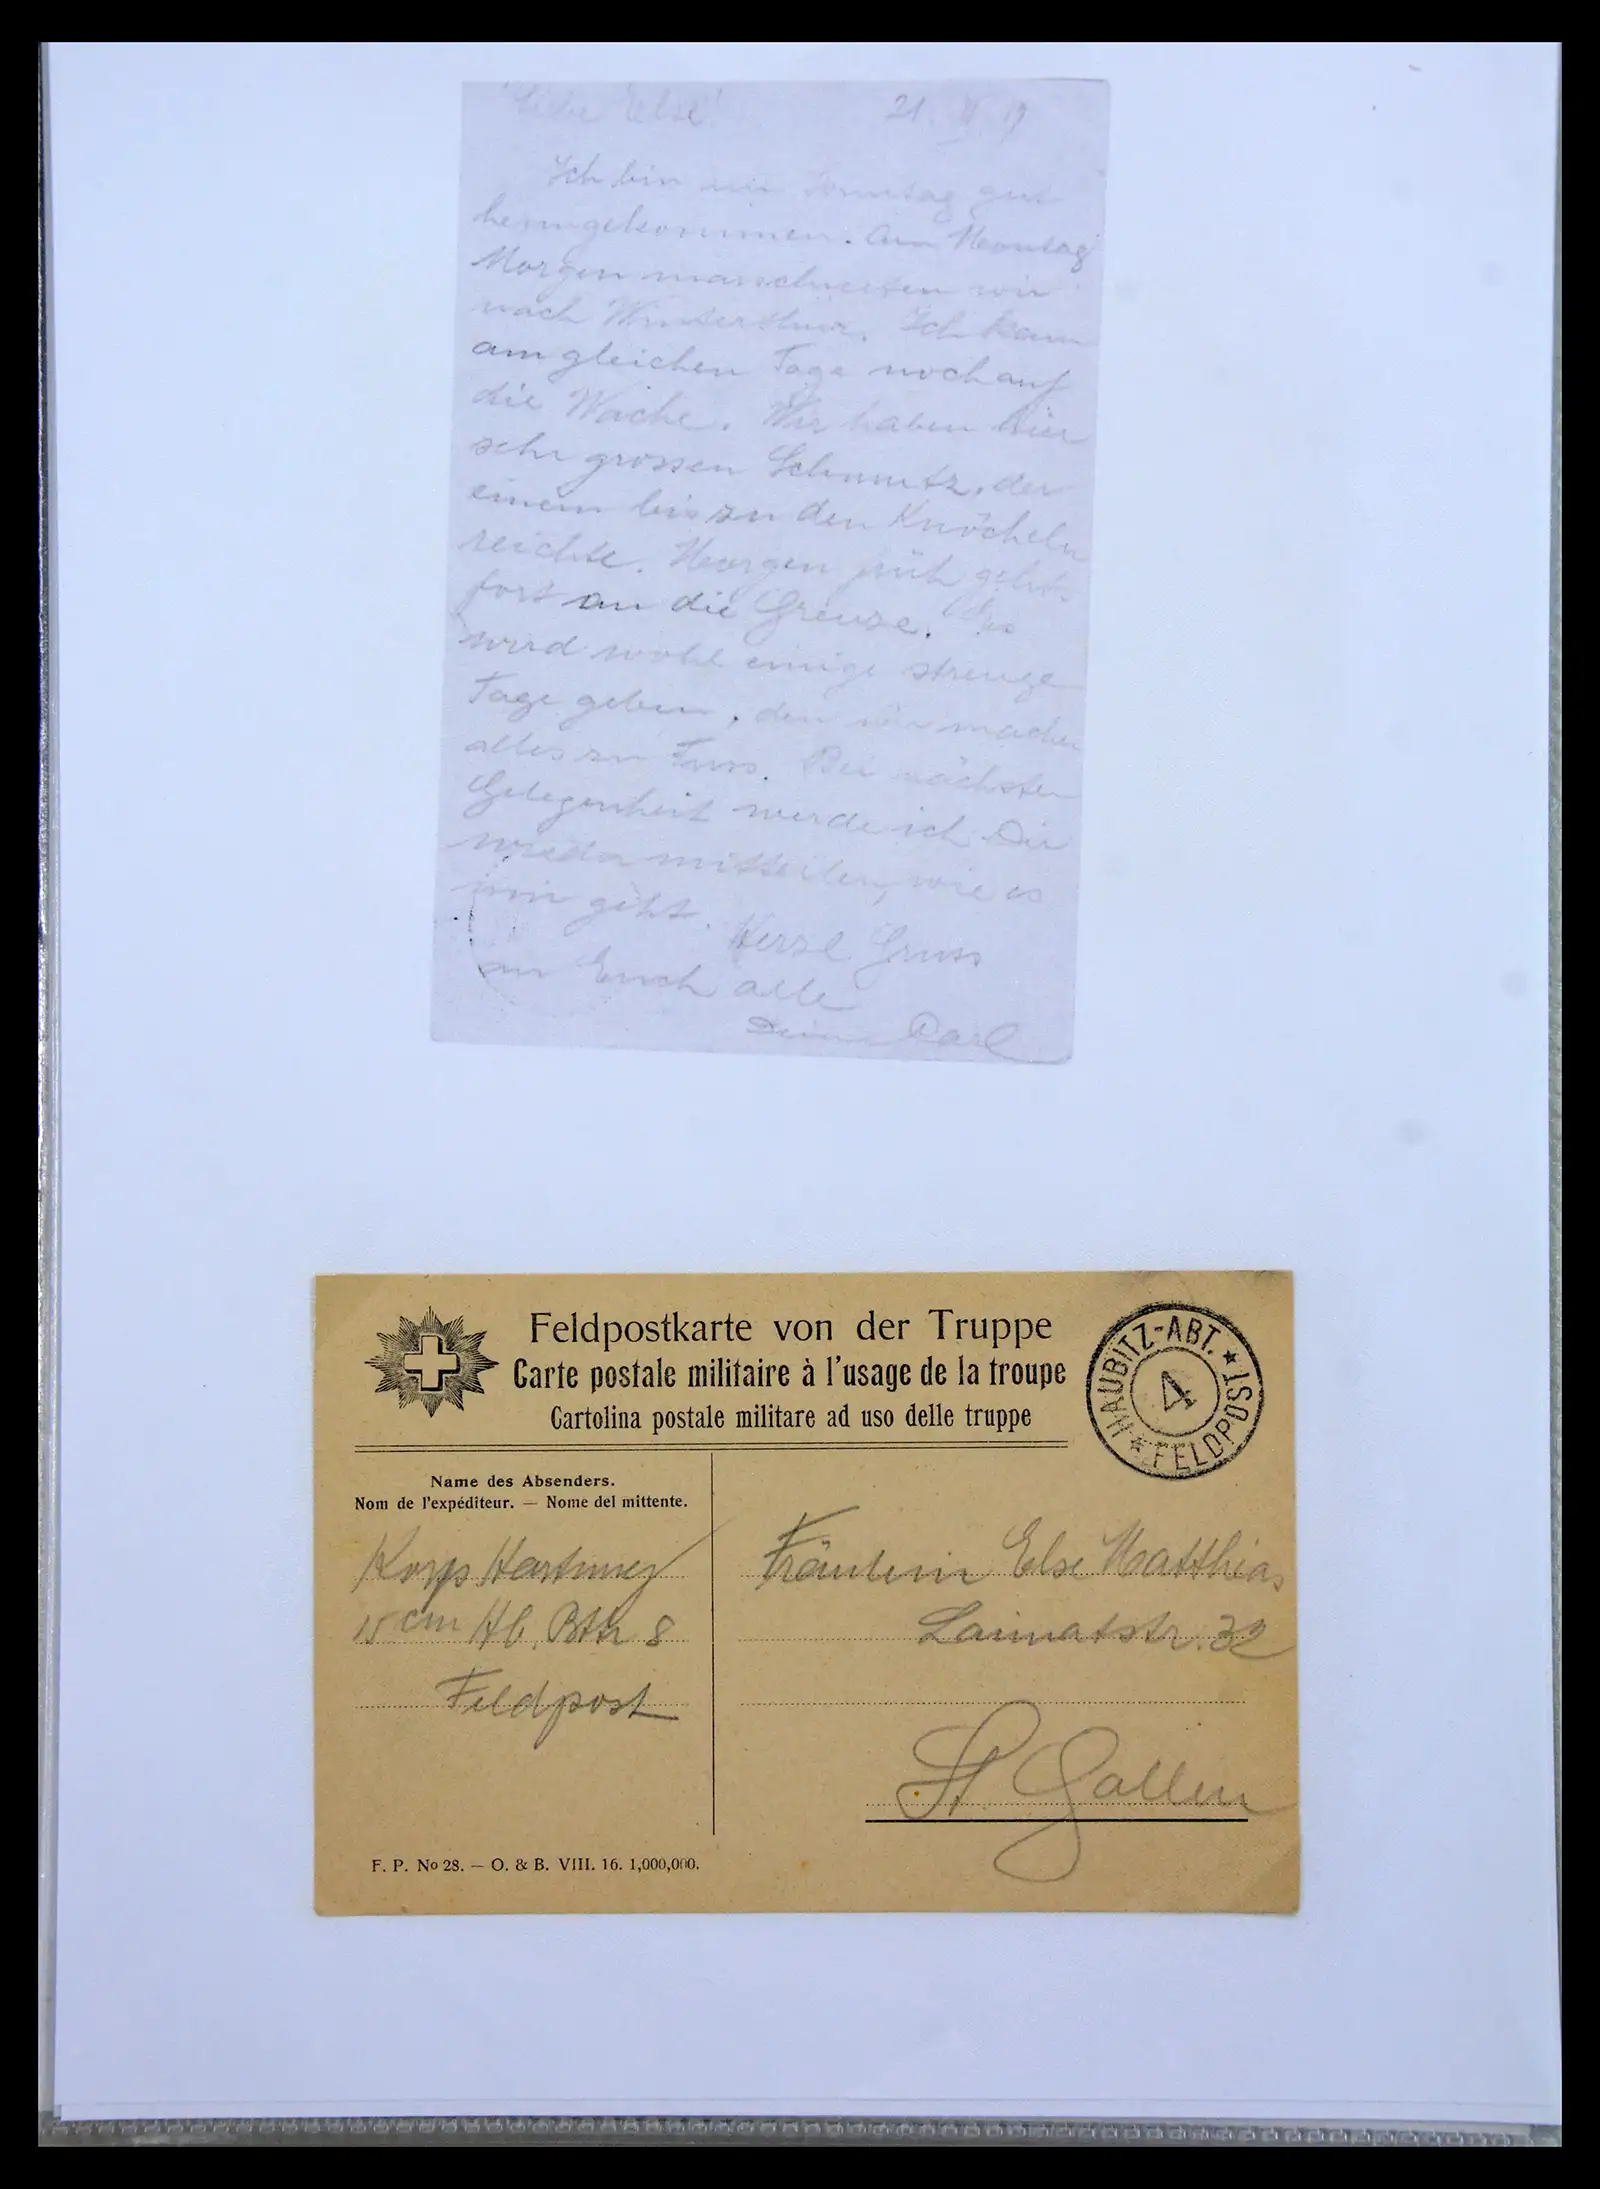 Liebe Else!
Ich bin am Sonntag gut
heimgekommen. Am Montag
Morgen marschierten wir
nach Winterthur. Ich kam
am gleichen Tage noch auf
die Wache. Wir haben hier
sehr grossen Schmutz, der
einem bis zu den Knöcheln
reichte. Morgen früh gehts
fort an die Grenze. Es
wird wohl einige strenge
Tage geben, den wir machen
alles zu Fuss. Bei nächster
Gelegenheit werde ich Dir
wieder mitteilen, wie es
mir geht. Herzl. Gruss
an Euch alle
Dein Carl
Feldpostkarte von der Truppe
Carte postale militaire à l'usage de la troupe
Cartolina postale militare ad uso delle truppe
HAUBITZ-ABT. ★ FELDPOST ★
4
Name des Absenders.
Nom de l'expéditeur. — Nome del mittente.
Korp
15 cm Hb. Bttr 8
Feldpost
Fräulein Else Matthias
32
St Gallen
F. P. No 28. — O. & B. VIII. 16. 1,000,000.